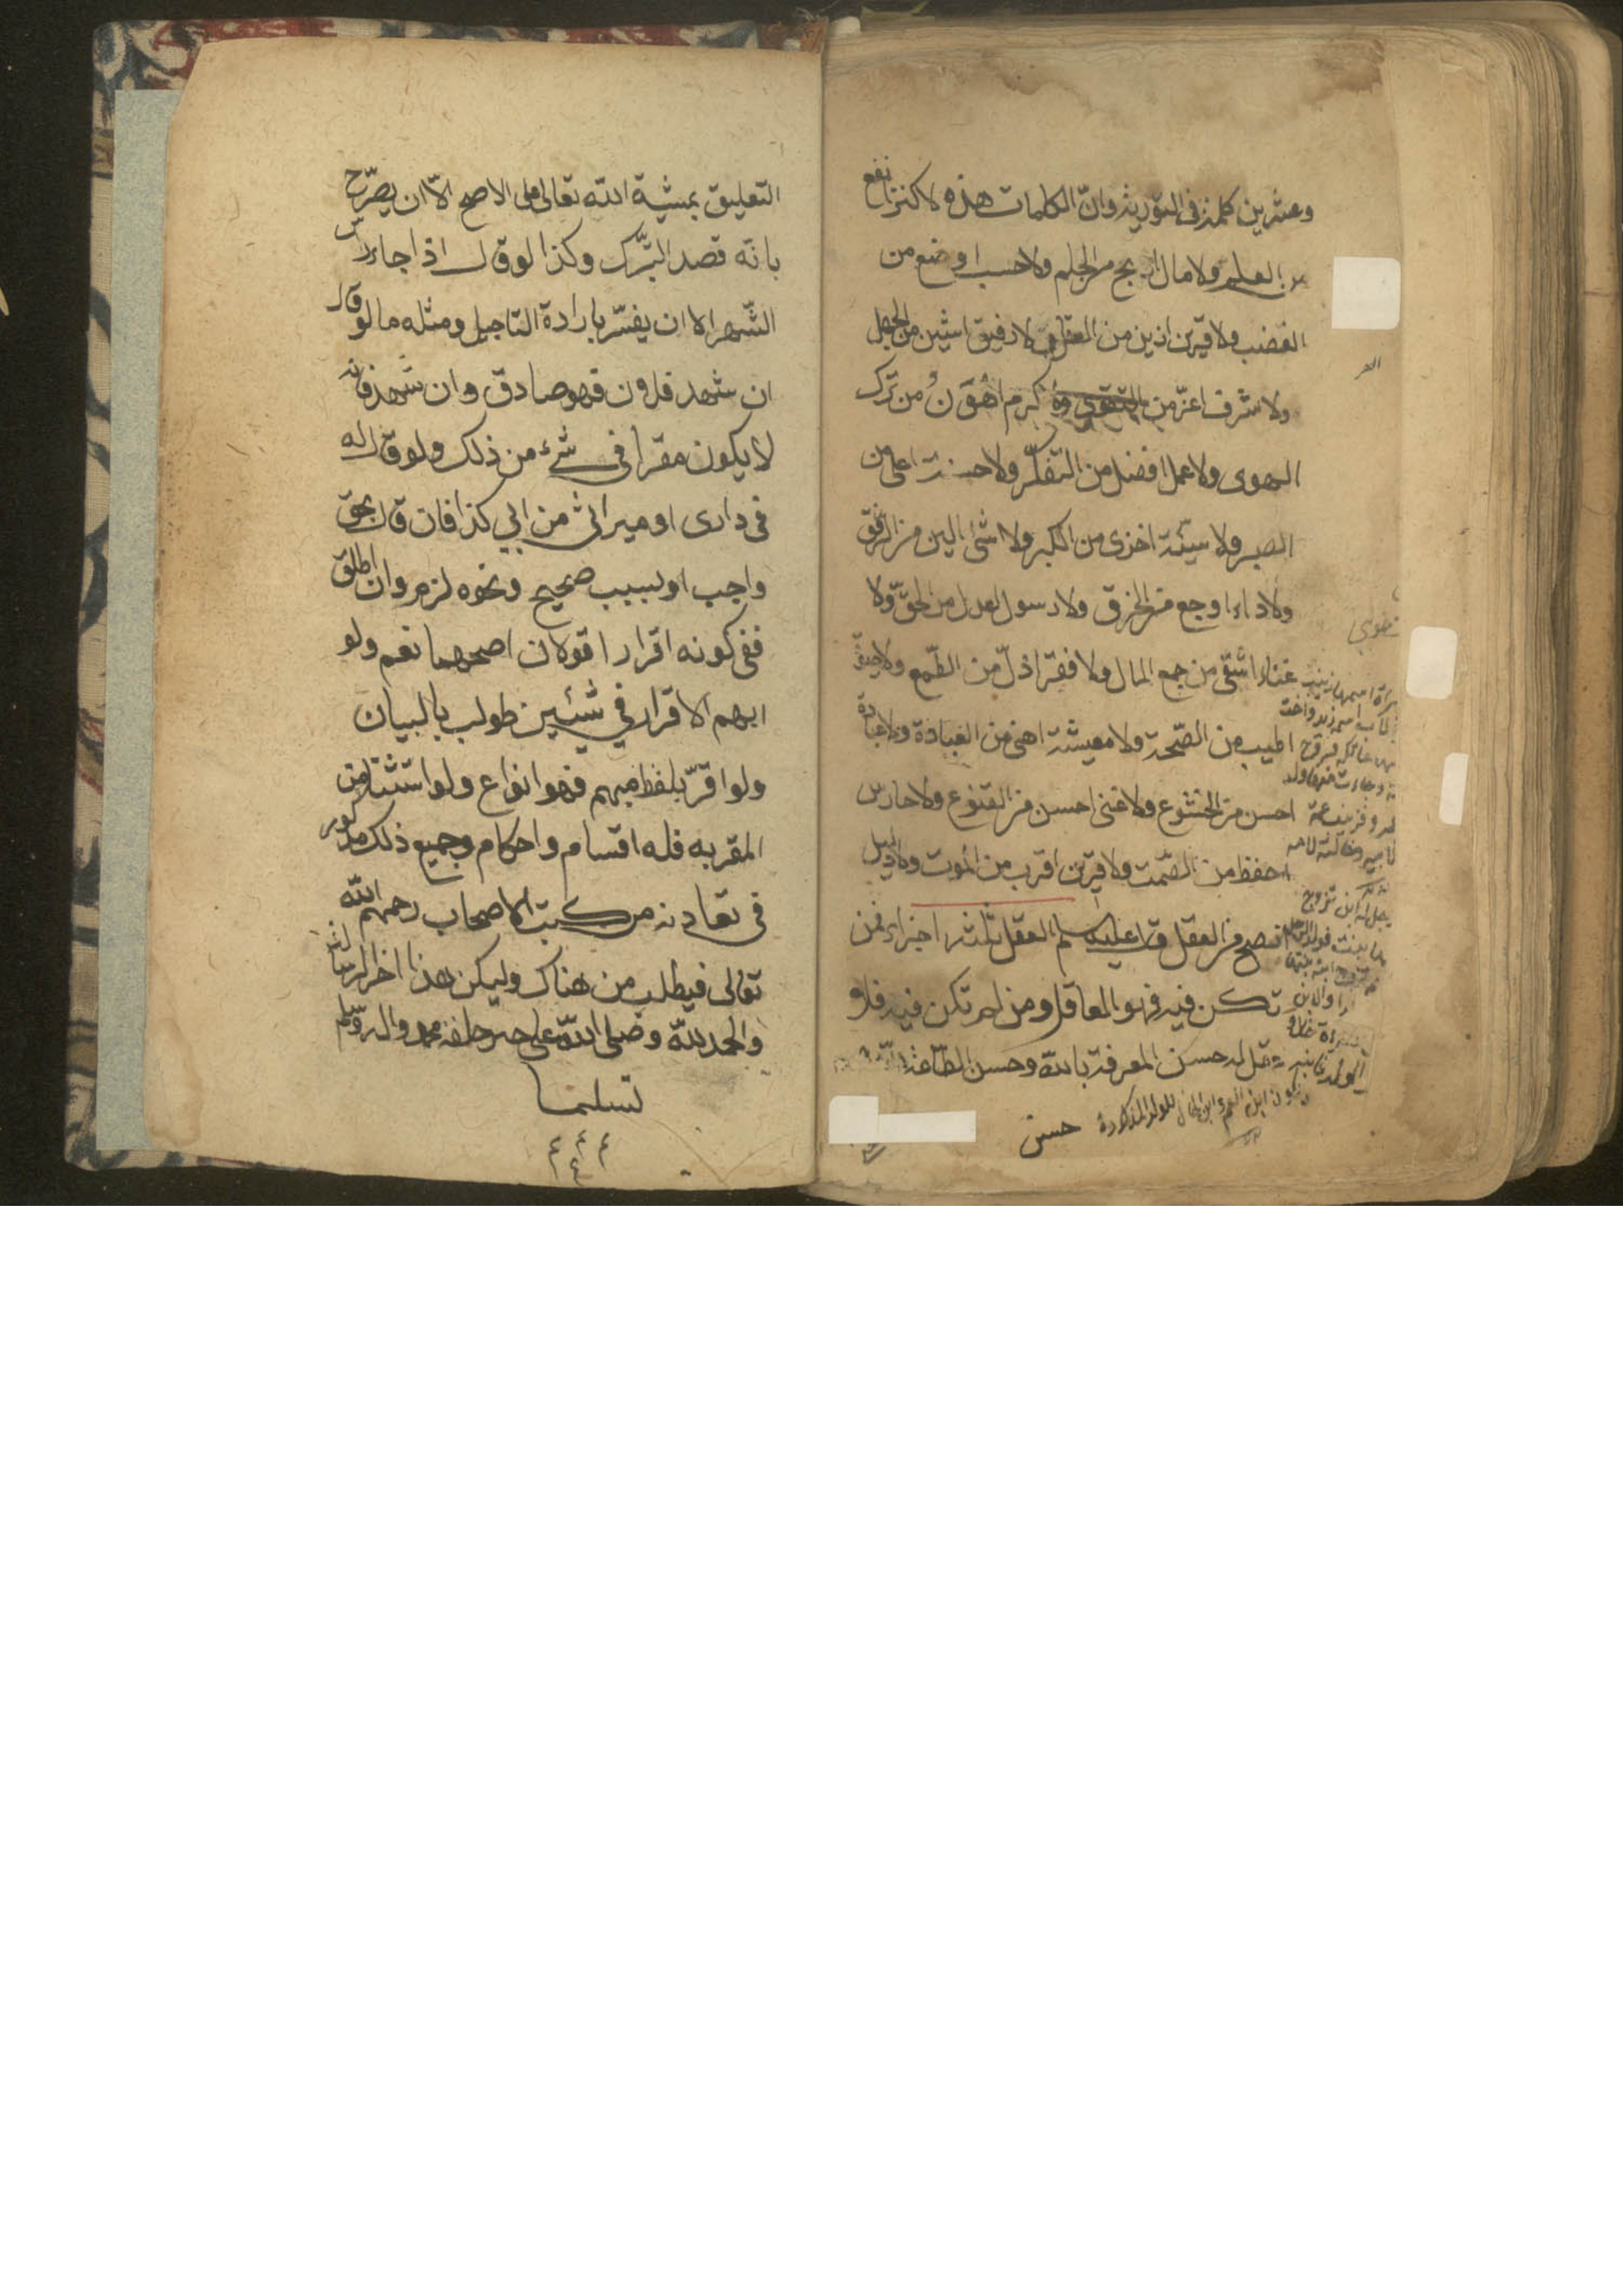 وعشرين كلمة في التورية وان الكلمات هذه لا كنز انفع
من العلم ولا مال اربح من الحلم ولا حسب اوضع من
الغضب ولا قرين ازين من العقل ولا رفيق اشين من الجهل
ولا شرف اعز من التقوى ولا كرم اهون من ترك
الهوى ولا عمل افضل من التفكر ولا حسنة اعلى من
الصبر ولا سيئة اخزى من الكبر ولا شئ الين من الرفق
ولا داء اوجع من الخرق ولا رسول اعدل من الحق ولا
غناء اشقى من جمع المال ولا فقر اذل من الطمع ولا حيوة
اطيب من الصحة ولا معيشة اهنى من العبادة ولا عبادة
احسن من الخشوع ولا غنى احسن من القنوع ولا حارس
احفظ من الصمت ولا قرين اقرب من الموت ولا دليل
انصح من العقل قال عليه سلم العقل ثلثة اجزاء فمن
تكن فيه فهو العاقل ومن لم تكن فيه فلا
عقل له حسن المعرفة بالله وحسن الطاعة
حسن
التعليق بمشية الله تعالى على الاصح الا ان يصرح
بانه قصد التبرك وكذا لو قال اذا جاء راس
الشهر الا ان يفسر بارادة التاجيل ومثله ما لو قال
ان شهد فلان فهو صادق وان شهد فانه
لا يكون مقرا في شئ من ذلك ولو قال له
في دارى او ميراثى من ابي كذا فان قال بحق
واجب او بسبب صحيح ونحوه لزم وان اطلق
ففي كونه اقرارا قولان اصحهما نعم ولو
ابهم الاقرار في شيئين طولب بالبيان
ولو اقر بلفظ مبهم فهو انواع ولو استثنا من
المقر به فله اقسام واحكام وجميع ذلك مذكور
في معادنه من كتب الاصحاب رحمهم الله
تعالى فيطلب من هناك وليكن هذا اخر الرسالة
والحمد لله وصلى الله على خير خلقه محمد واله وسلم
تسليما